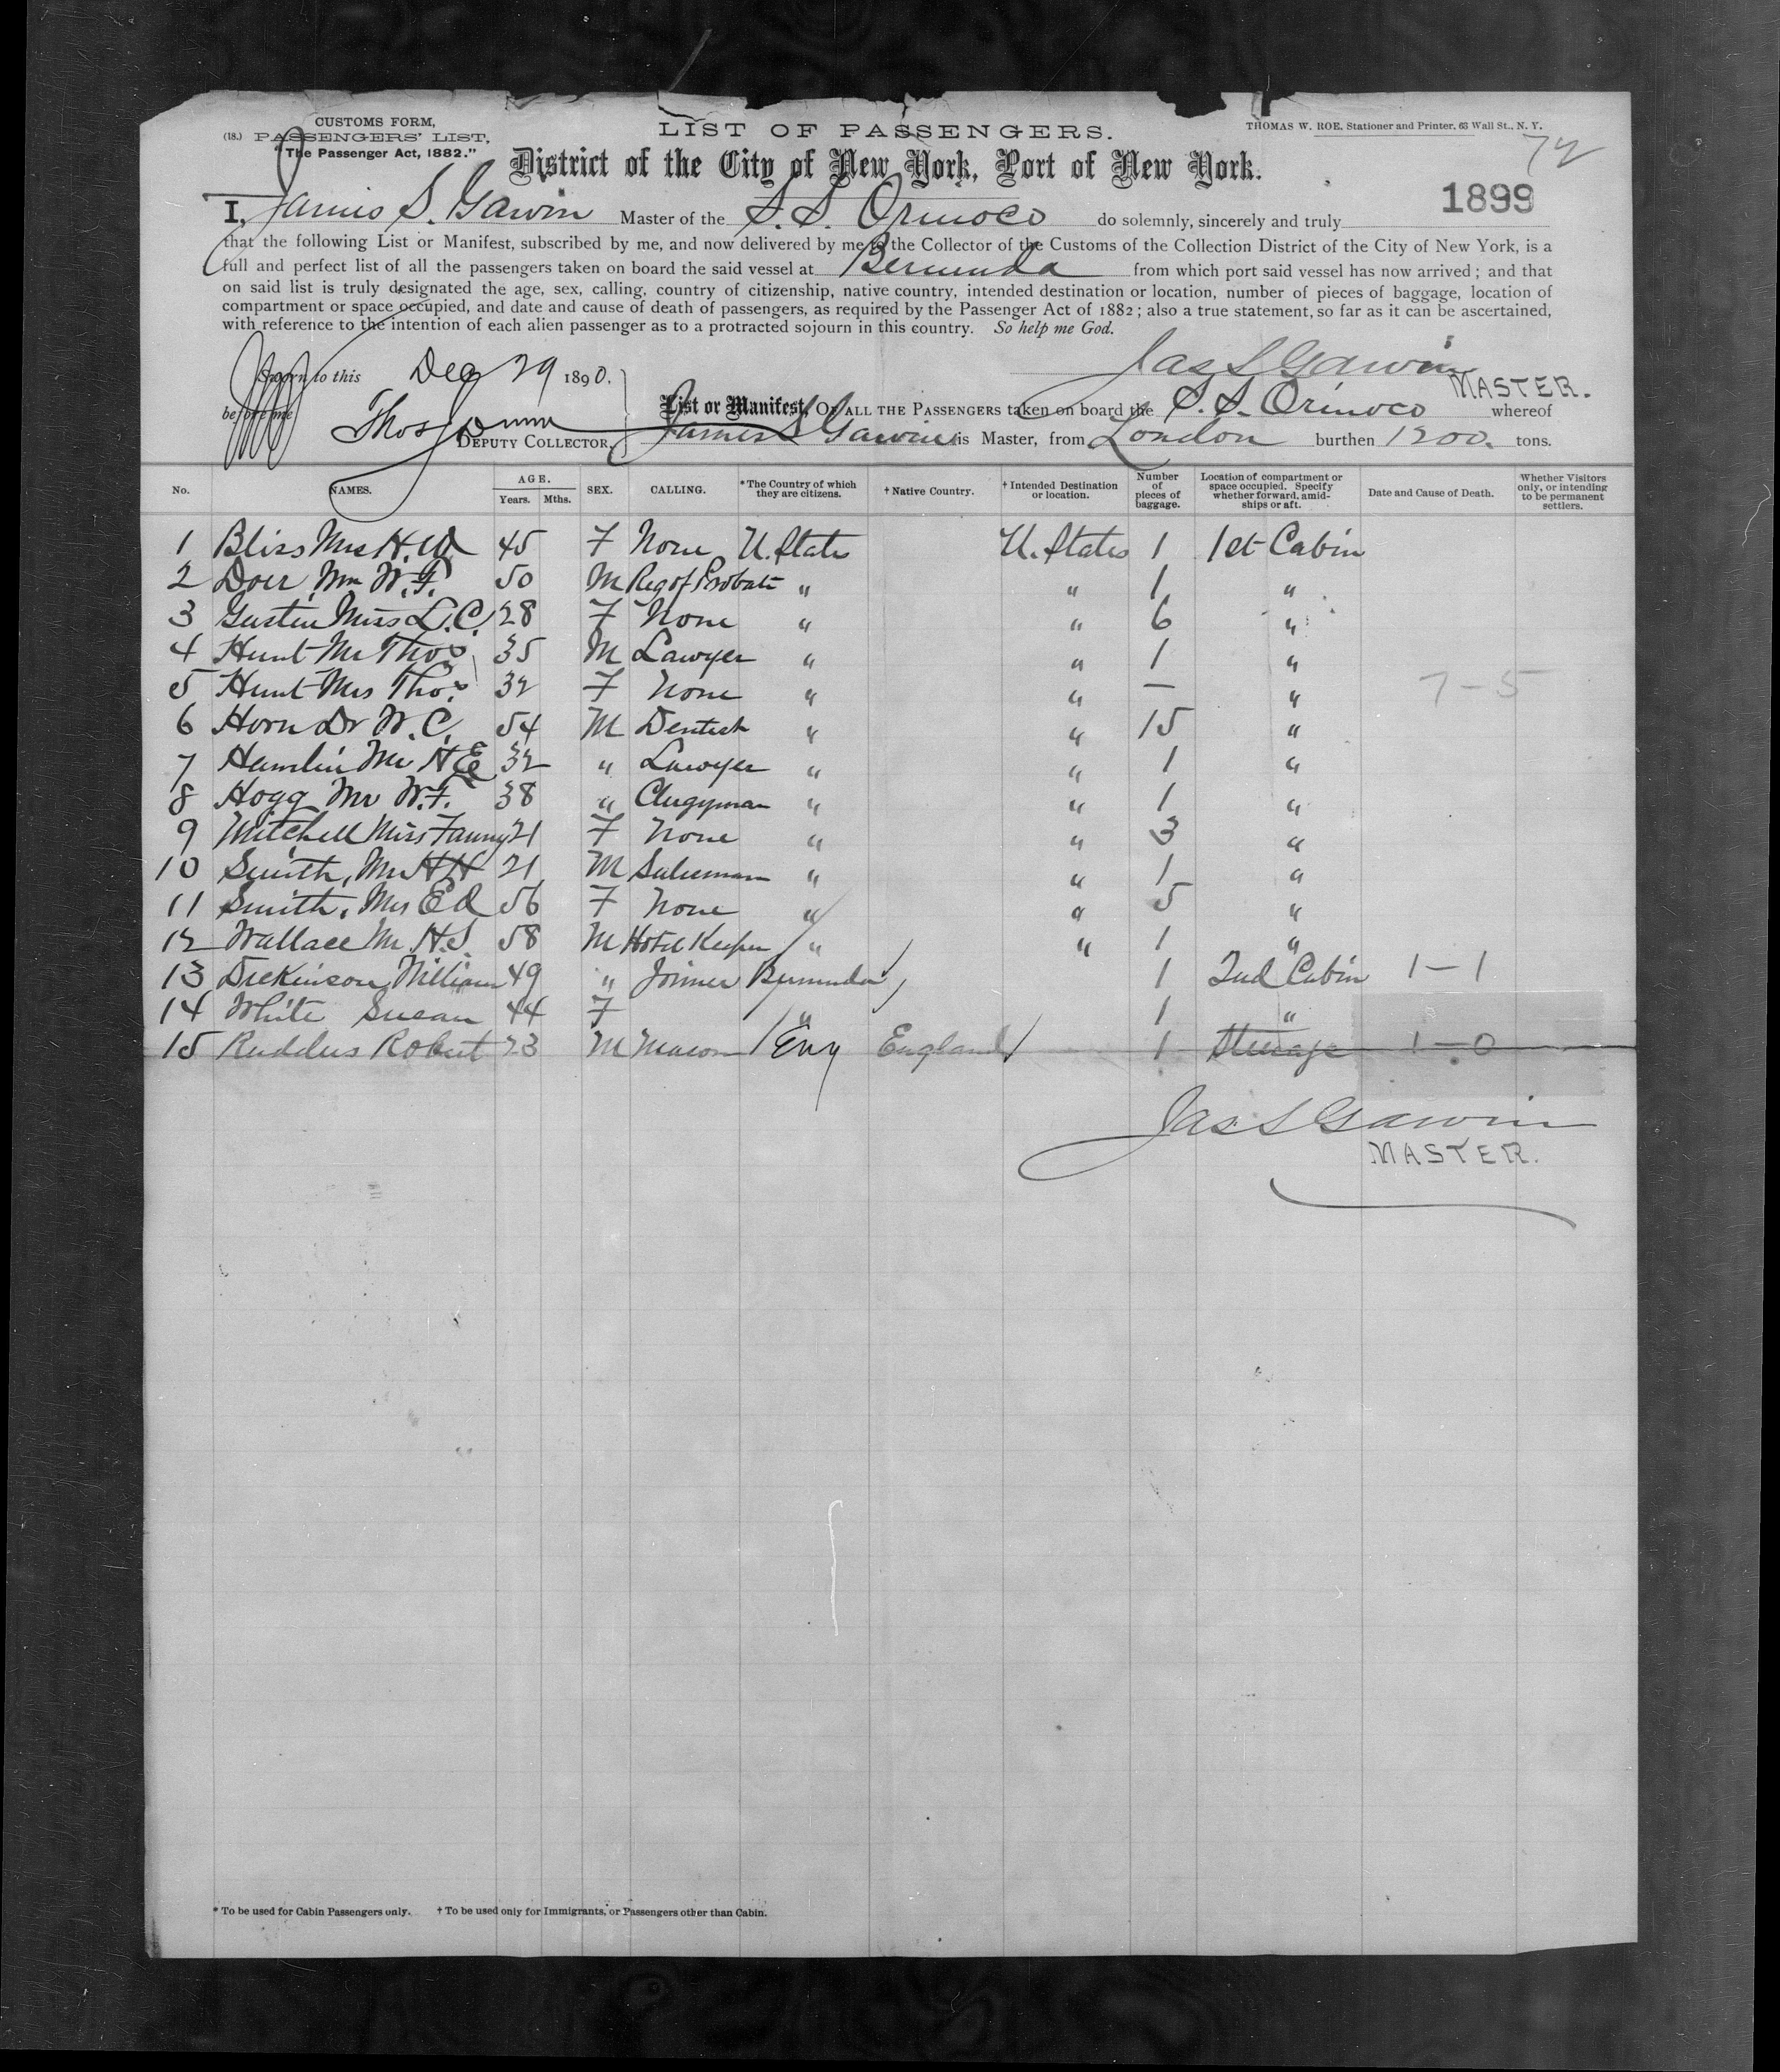 CUSTOMS FORM,
(18.) PASSENGERS' LIST,
"The Passenger Act, 1882."
LIST OF PASSENGERS.
THOMAS W. ROE, Stationer and Printer, 63 Wall St., N. Y.
District of the City of New York, Port of New York.
1899
I, James S. Garvin Master of the S.S. Orinoco do solemnly, sincerely and truly
that the following List or Manifest, subscribed by me, and now delivered by me to the Collector of the Customs of the Collection District of the City of New York, is a
full and perfect list of all the passengers taken on board the said vessel at Bermuda from which port said vessel has now arrived; and that
on said list is truly designated the age, sex, calling, country of citizenship, native country, intended destination or location, number of pieces of baggage, location of
compartment or space occupied, and date and cause of death of passengers, as required by the Passenger Act of 1882; also a true statement, so far as it can be ascertained,
with reference to the intention of each alien passenger as to a protracted sojourn in this country. So help me God.
Sworn to this Dec 29 1890.
Jas S Garvin
MASTER.
before me
Thos Dunn
DEPUTY COLLECTOR.
List or Manifest, OF ALL THE PASSENGERS taken on board the S.S. Orinoco whereof
James S Garvin is Master, from London burthen 1200. tons.
No. NAMES. AGE. Years. Mths. SEX. CALLING. *The Country of which they are citizens. †Native Country. †Intended Destination or location. Number of pieces of baggage. Location of compartment or space occupied. Specify whether forward, amidships or aft. Date and Cause of Death. Whether Visitors only, or intending to be permanent settlers.
1 Bliss Mrs H.W. 45 F None U. States U. States 1 1st Cabin
2 Doer Wm W.F. 50 M Reg of Probate " " 1 "
3 Gustin Miss L.C. 28 F None " " 6 "
4 Hunt Mr Thos 35 M Lawyer " " 1 "
5 Hunt Mrs Thos 32 F None " " — " 7-5
6 Horn Dr W.C. 54 M Dentist " " 15 "
7 Hamlin Mr H E 32 " Lawyer " " 1 "
8 Hogg Mr W.F. 38 " Clergyman " " 1 "
9 Mitchell Miss Fanny 21 F None " " 3 "
10 Smith, Mr H H 21 M Salesman " " 1 "
11 Smith, Mrs E A 56 F None " " 5 "
12 Wallace Mr. H.S. 58 M Hotel Keeper " " 1 "
13 Dickinson William 49 " Joiner Bermuda 1 2nd Cabin 1-1
14 White Susan 44 F " 1 "
15 Robert 23 M Mason Eng England 1 Steerage 1-0
Jas S Garvin
MASTER.
* To be used for Cabin Passengers only. † To be used only for Immigrants, or Passengers other than Cabin.